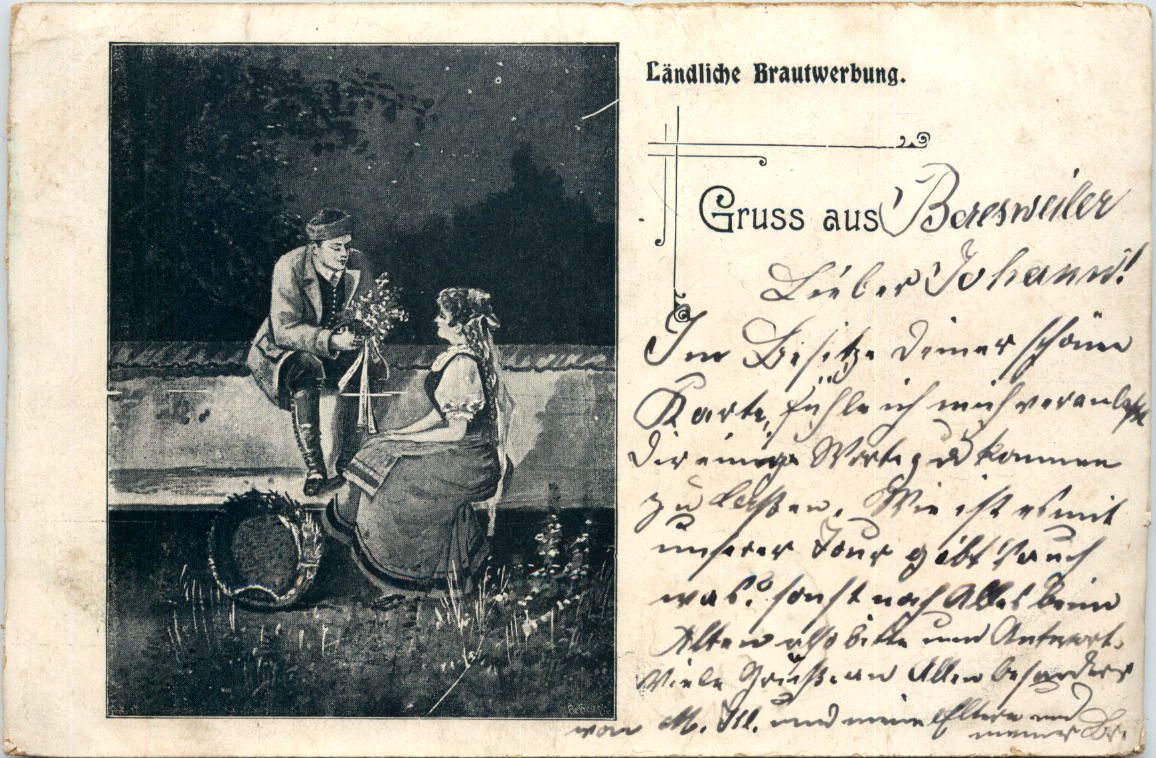 Ländliche Brautwerbung.
Gruss aus Baesweiler
Lieber Johann!
Im Besitze deiner schöne
Karte, fühle ich mich veranlaßt
Dir einige Worte zu kommen
zu laßen. Wie ist es mit
unserer Tour gibt's auch
was? sonst noch Alles beim
Alten also bitte um Antwort.
Viele Grüße an Allen besonders
von M. und meine Eltern und
meiner